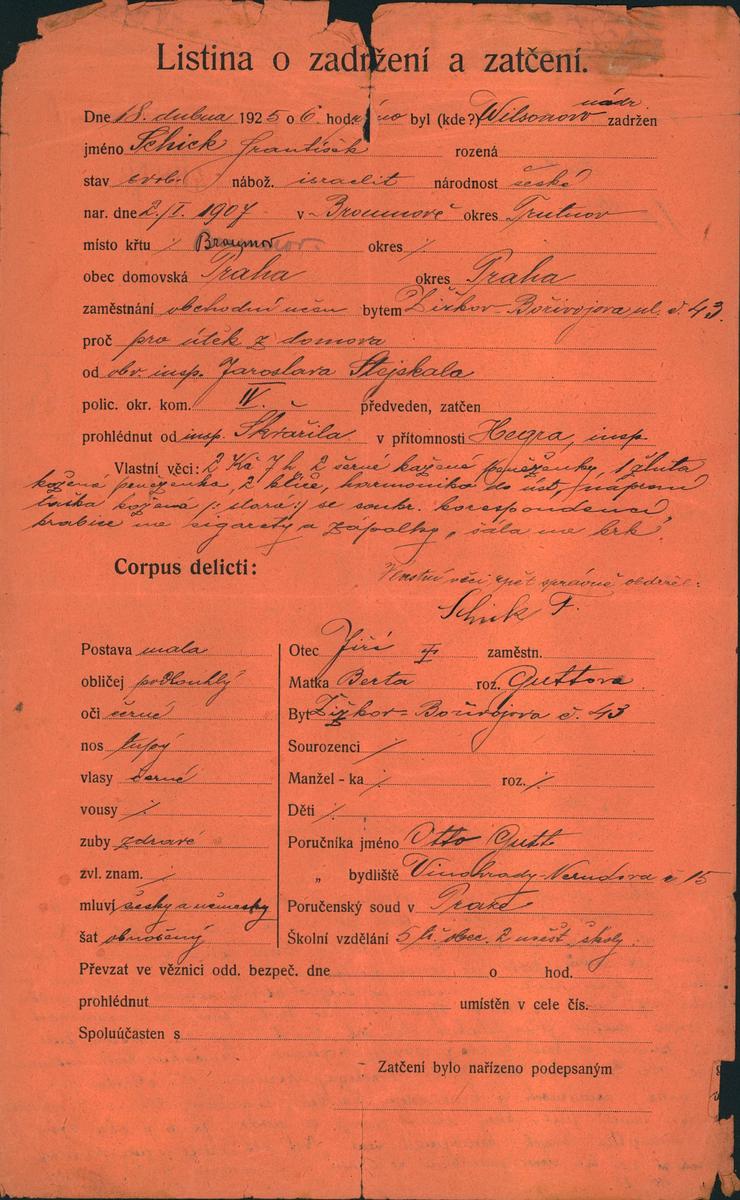 Listina o zadržení a zatčení.
Dne 18. dubna 1925 o 6 hod. byl (kde?) Wilsonovo nádr. zadržen
jméno Schick František rozená
stav svob. nábož. israelit národnost česká
nar. dne 2./I. 1907 v Broumově okres Trutnov
místo křtu ⁒ Broumov okres ⁒
obec domovská Praha okres Praha
zaměstnání obchodní učeň bytem Žižkov - Bořivojova ul. č. 43.
proč pro útěk z domova
od obv. insp. Jaroslava Stejskala
polic. okr. kom. IV. předveden, zatčen
prohlédnut od insp. Skřařila v přítomnosti Hegra, insp.
Vlastní věci: 2 Kč 7 h, 2 černé kožené peněženky, 1 žlutá
kožená peněženka, 2 klíče, harmonika do úst, náprsní
taška kožená /: stará :/ se soukr. korespondencí
krabice na cigarety a zápalky, šála na krk.
Corpus delicti:
Vlastní věci zpět správně obdržel:
Schick F.
Postava malá
obličej podlouhlý
oči černé
nos tupý
vlasy černé
vousy ⁒
zuby zdravé
zvl. znam. ⁒
mluví česky a německy
šat obnošený
Otec Jiří ‡ zaměstn.
Matka Berta roz. Guttova
Byt Žižkov - Bořivojova č. 43
Sourozenci ⁒
Manžel - ka ⁒ roz. ⁒
Děti ⁒
Poručníka jméno Otto Gutt
„ bydliště Vinohrady - Nerudova č 15
Poručenský soud v Praze
Školní vzdělání 5 tř. obec. 2 měšť. školy.
Převzat ve věznici odd. bezpeč. dne o hod.
prohlédnut umístěn v cele čís.
Spoluúčasten s
Zatčení bylo nařízeno podepsaným